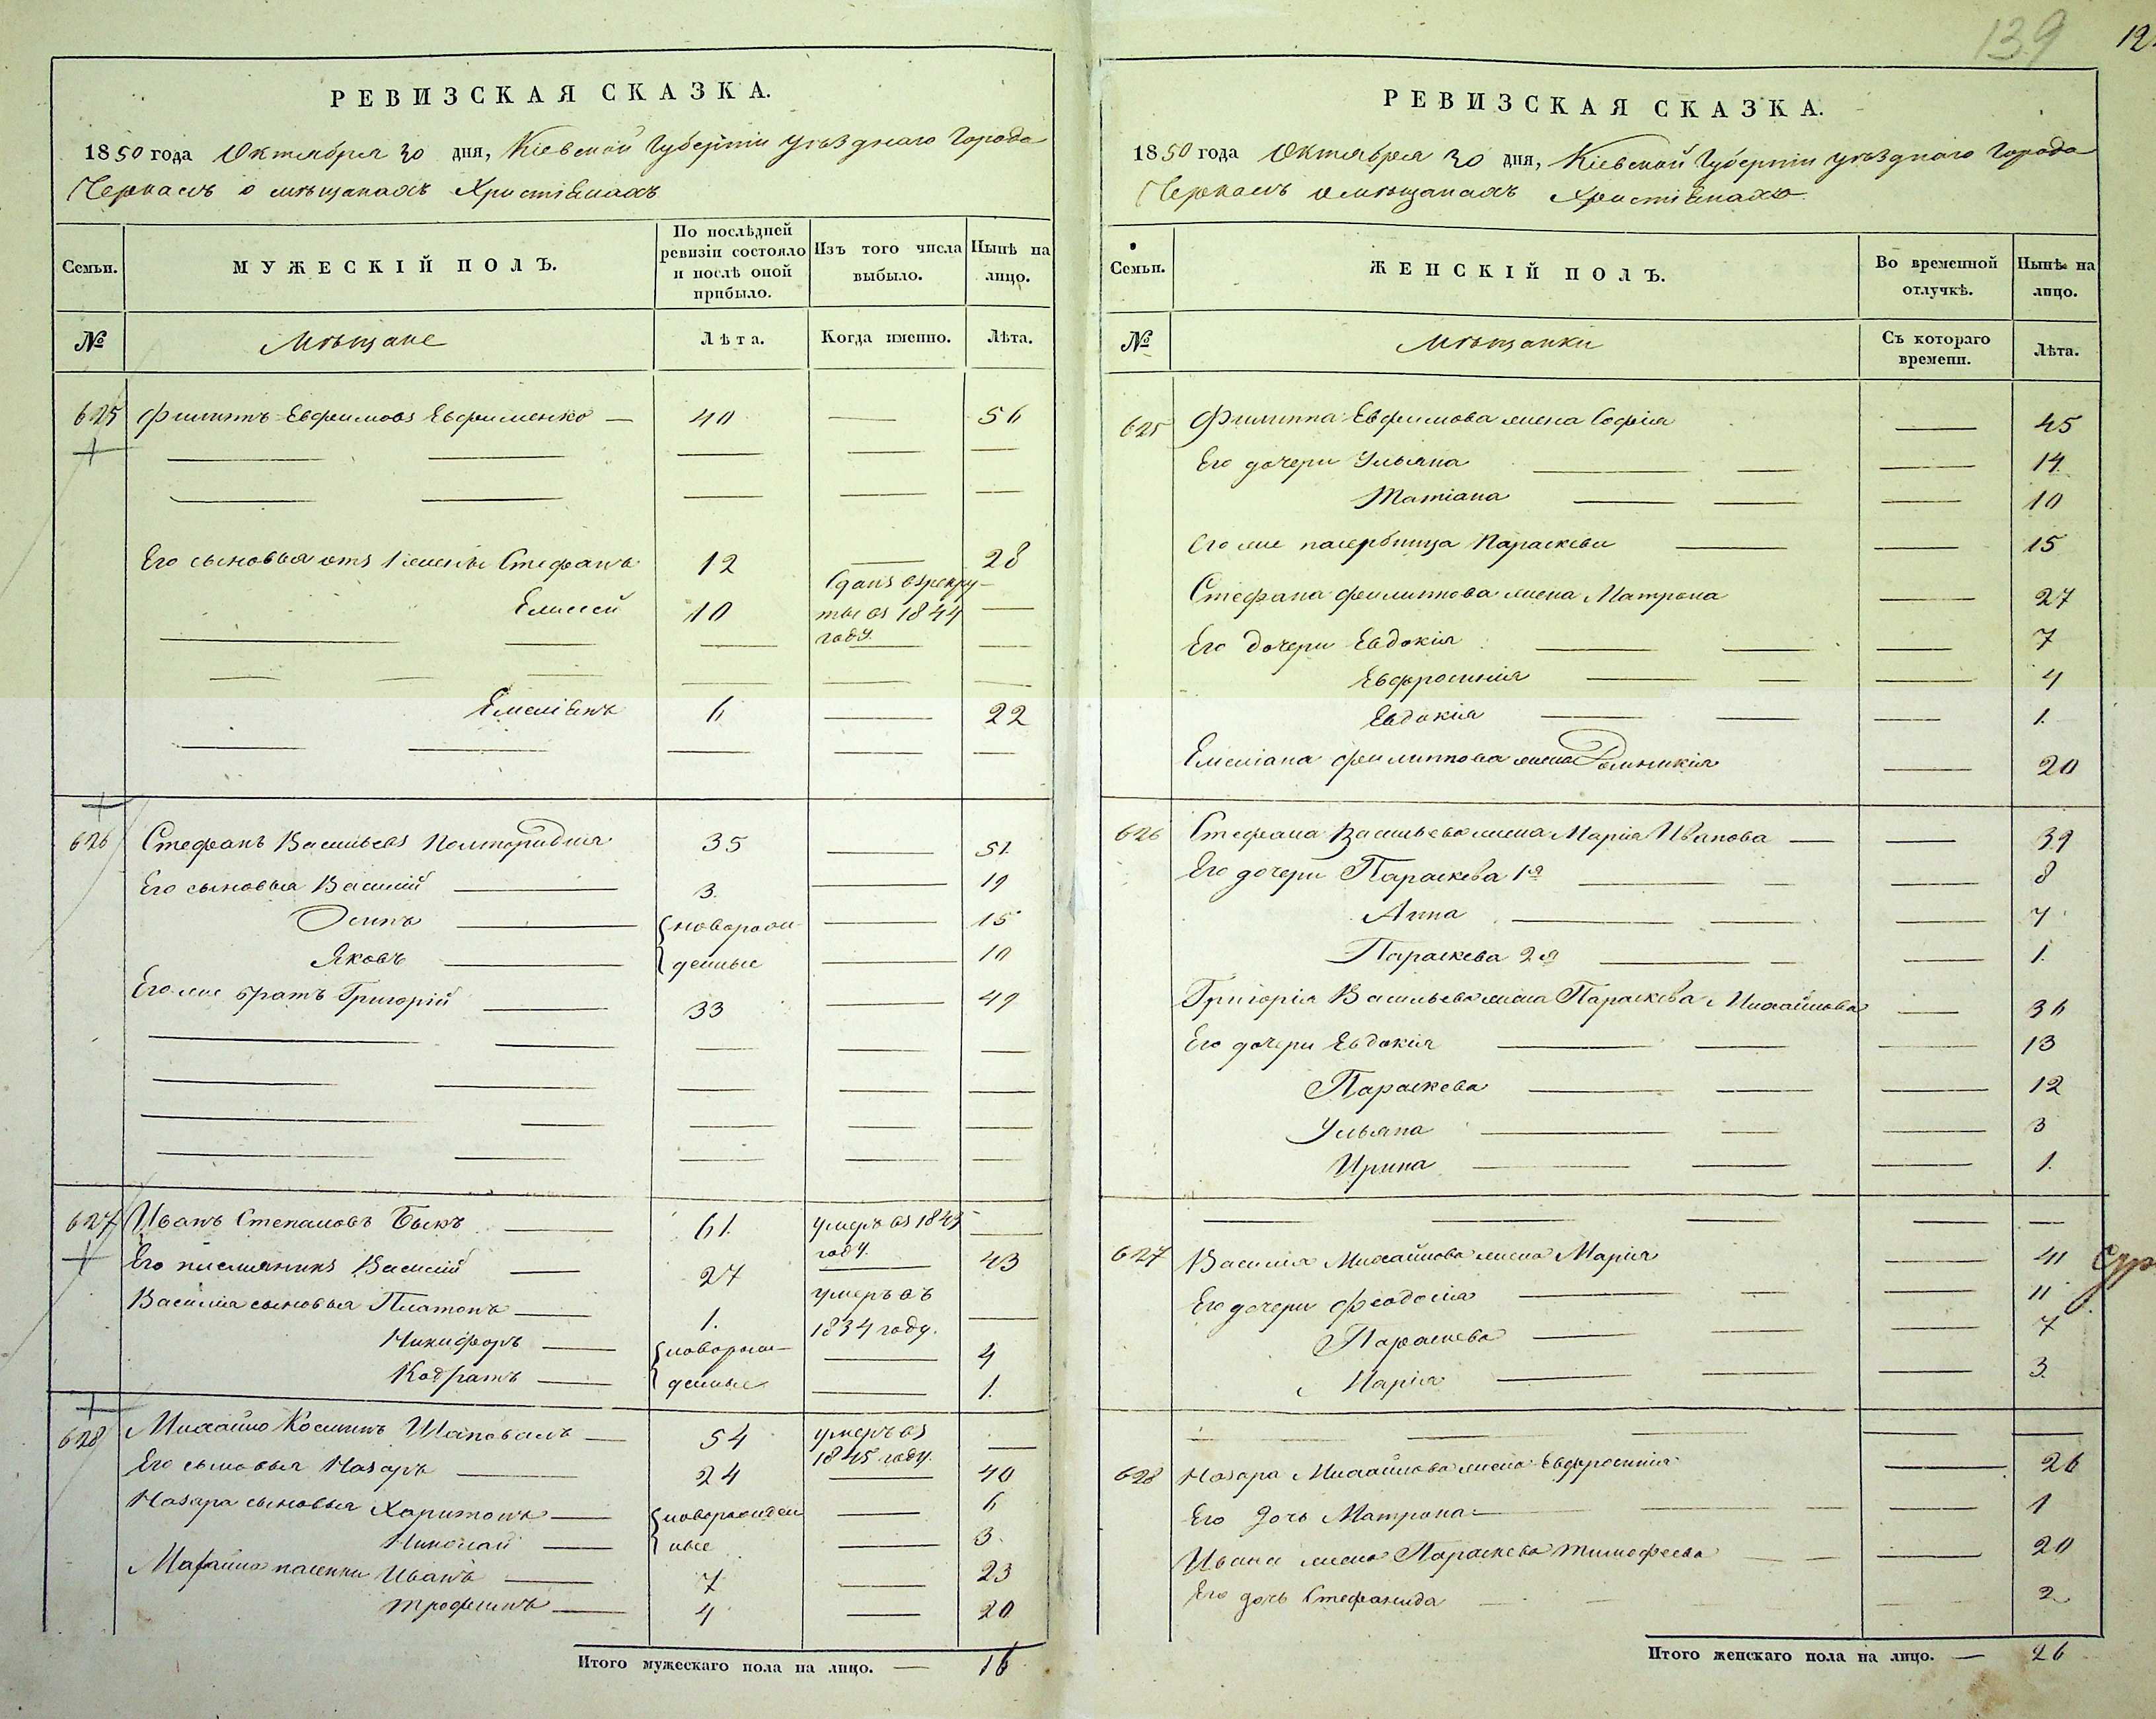 139
12
РЕВИЗСКАЯ СКАЗКА.
1850 года Октября 30 дня, Кіевской Губерніи уѣзднаго Города
Черкасъ о мѣщанахъ Христіянахъ
Семьи.
МУЖЕСКІЙ ПОЛЪ.
По послѣдней ревизіи состояло и послѣ оной прибыло.
Изъ того числа выбыло.
Нынѣ на лицо.
№
Мѣщане
Лѣта.
Когда именно.
Лѣта.
625 Филиппъ Евфимовъ Евфименко — 40 — 56
Его сыновья отъ 1 жены Стефанъ 12 — 28
Елисей 10 Сданъ въ рекруты въ 1844 году. —
Емеліянъ 6 — 22
626 Стефанъ Васильевъ Полторидня 35 — 51.
Его сыновья Василій — 3. — 19
Осипъ — новорож- — 15
Яковъ — денные — 10
Его же братъ Григорій — 33 — 49
627 Иванъ Степановъ Быкъ — 61. умеръ въ 1845 году. —
Его племянникъ Василій — 27 — 43
Василія сыновья Платонъ — 1. умеръ въ 1834 году. —
Никифоръ — новорож- — 4
Кодратъ — денные — 1.
628 Михайло Косминъ Шаповалъ — 54 умеръ въ 1845 году. —
Его сыновья Назаръ — 24 — 40
Назара сыновья Харитонъ — новорожден — 6
Николай — ные — 3.
Михайла пасынки Иванъ — 7 — 23
Трофимъ — 4 — 20
Итого мужескаго пола на лицо. — 16
РЕВИЗСКАЯ СКАЗКА.
1850 года Октября 30 дня, Кіевской Губерніи уѣзднаго Города
Черкасъ о мѣщанахъ Христіянахъ.
Семьи.
ЖЕНСКІЙ ПОЛЪ.
Во временной отлучкѣ.
Нынѣ на лицо.
№
Мѣщанки
Съ котораго времени.
Лѣта.
625 Филиппа Евфимова жена Софія — 45
Его дочери Ульяна — 14
Татіана — 10
Его же пасербница Параскева — 15
Стефана Филиппова жена Матрона — 27
Его дочери Евдокія — 7
Евфросинія — 4
Евдокія — 1.
Емеліана Филиппова жена Домникія — 20
626 Стефана Васильева жена Марія Иванова — 39
Его дочери Параскева 1я — 8
Анна — 4
Параскева 2я — 1.
Григорія Васильева жена Параскева Михайлова — 36
Его дочери Евдокія — 13
Параскева — 12
Ульяна — 3
Ирина — 1.
627 Василія Михайлова жена Марія — 41
Его дочери Феодосія — 11
Параскева — 7
Марія — 3.
628 Назара Михайлова жена Евфросинія — 26
Его дочь Матрона — 1
Ивана жена Параскева Тимофеева — 20
Его дочь Стефанида — 2
Итого женскаго пола на лицо. — 26